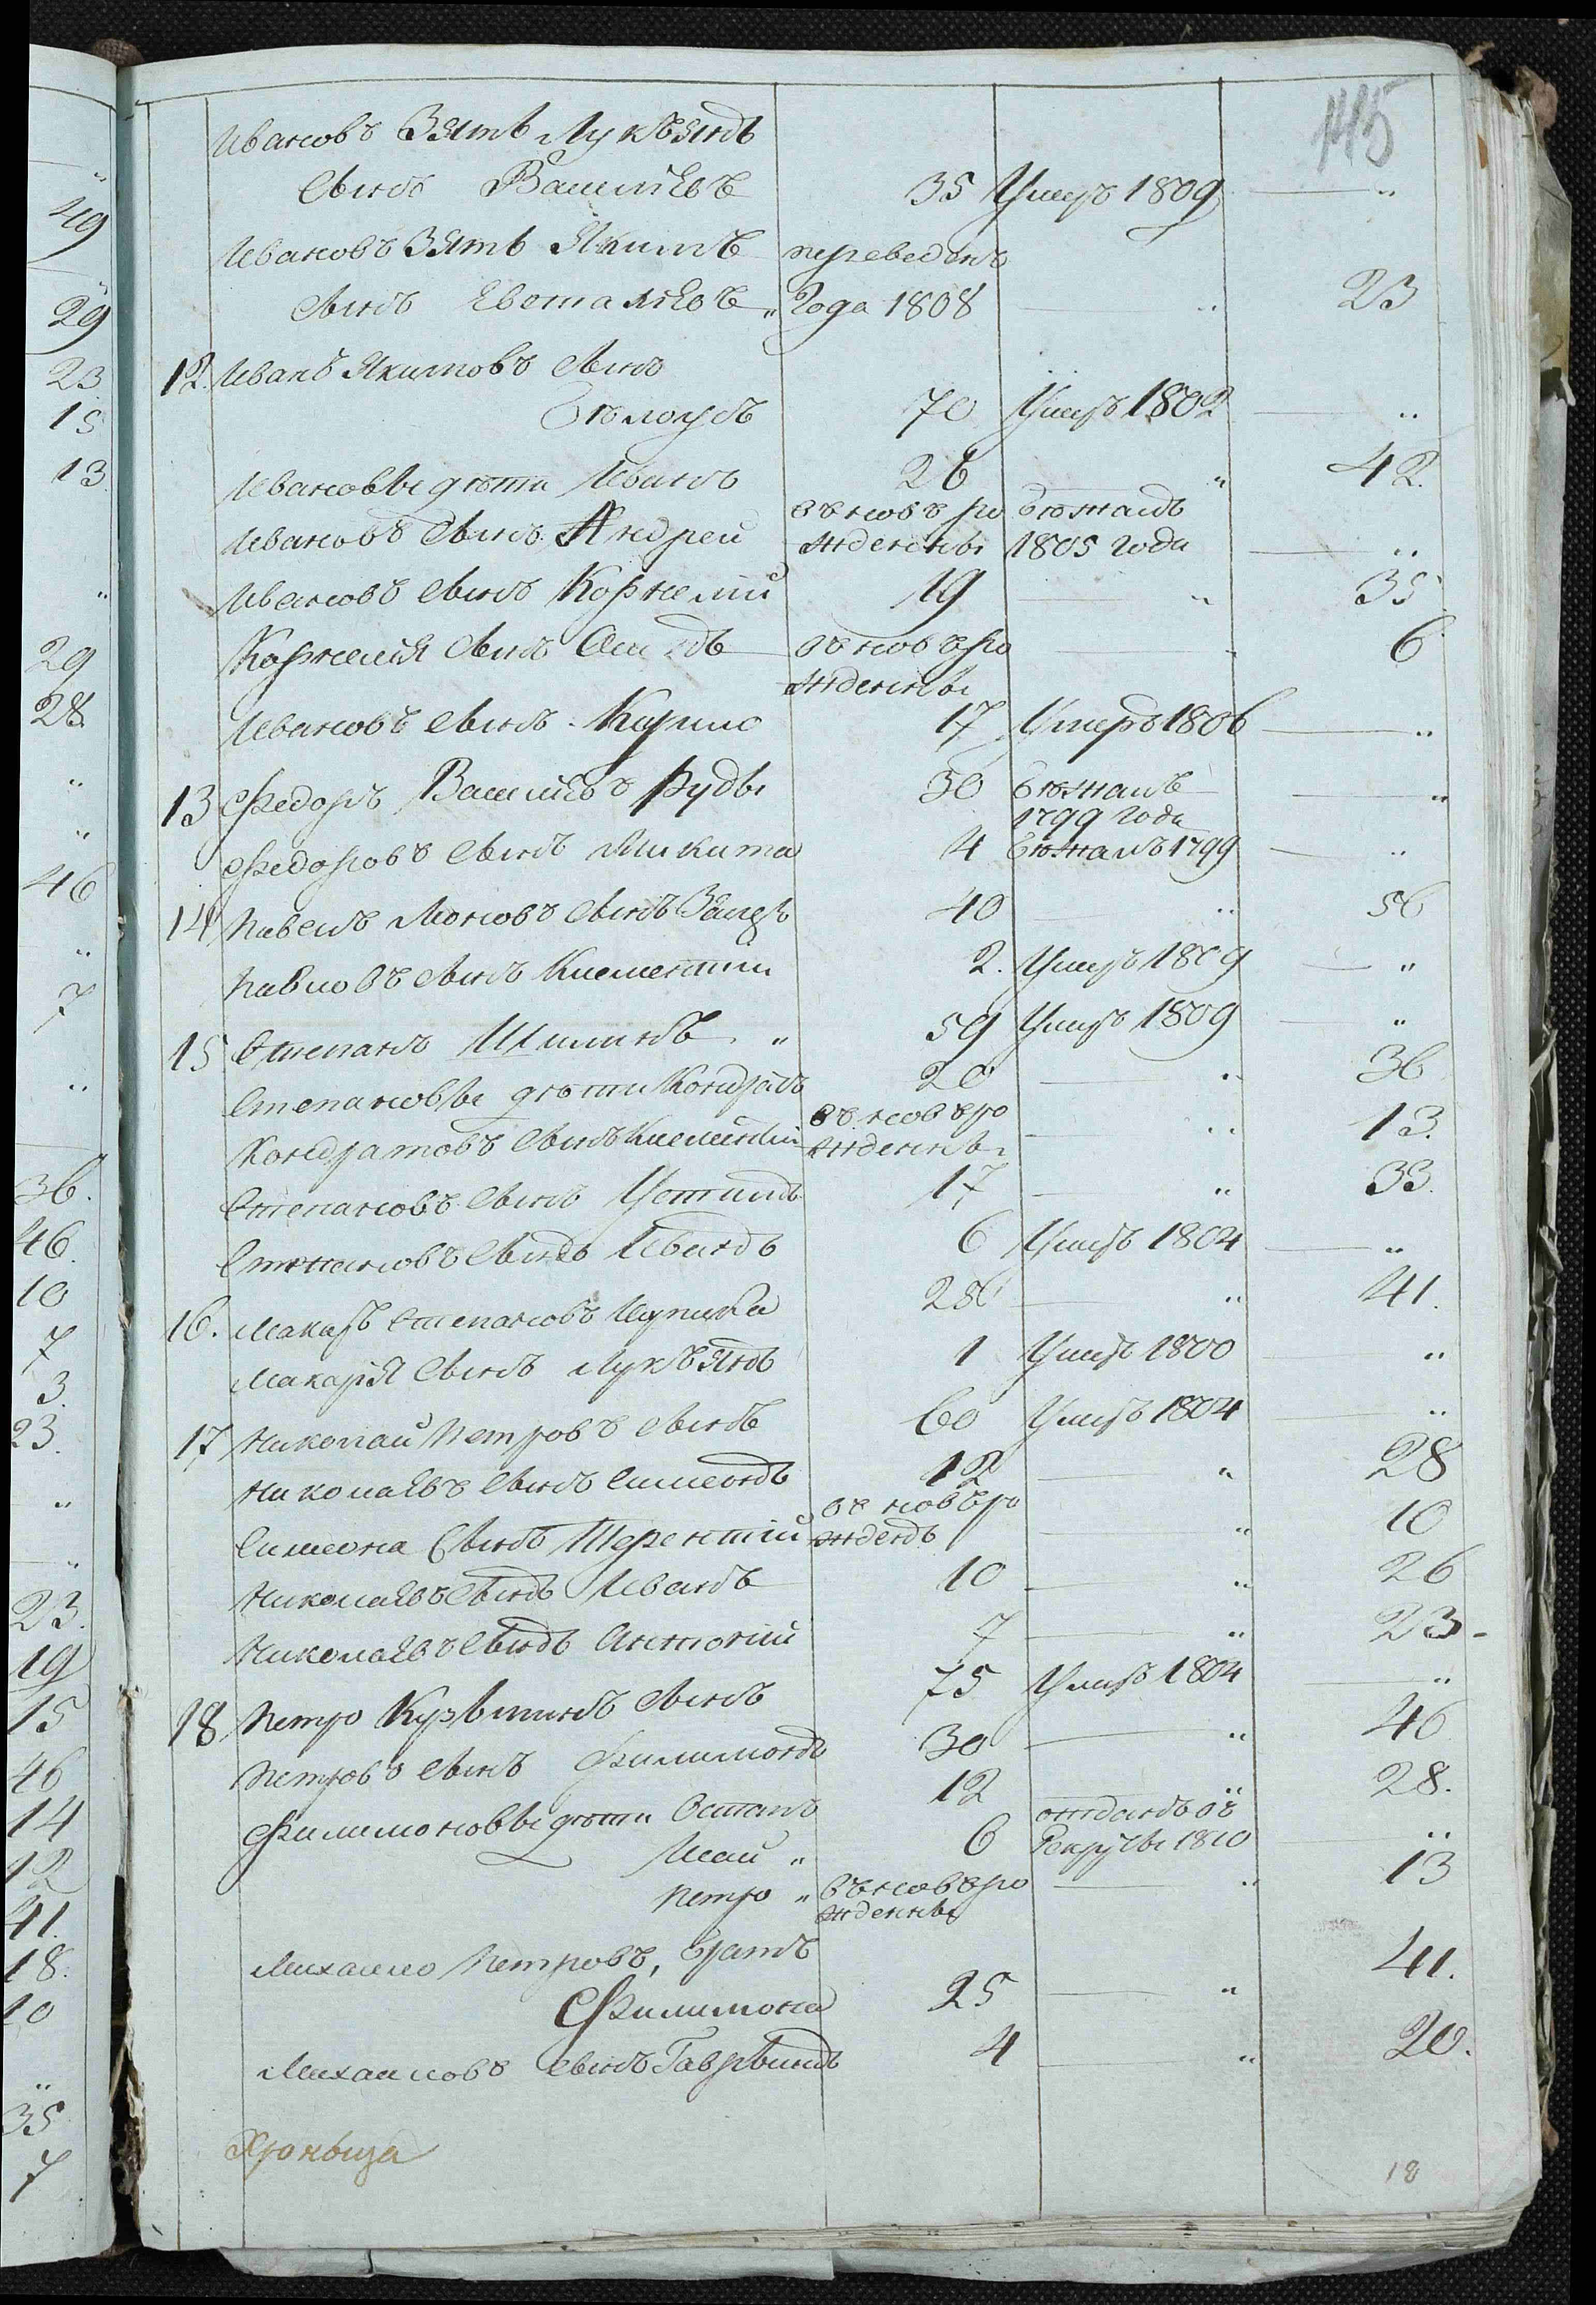 145
Ивановъ Зять Лукъянъ
Сынъ Васильевъ 35 Умеръ 1809 "
Ивановъ Зять Якимъ переведенъ
Сынъ Евстафіевъ " Года 1808 " 23
12. Иванъ Якимовъ Сынъ
Бѣлоусъ 70 Умеръ 1802 "
Ивановы дѣти Иванъ 26 " 42.
Ивановъ Сынъ Андрей въ новъ ро бѣжалъ
жденны 1805 года "
Ивановъ Сынъ Корнелій 19 " 35
Корнелія Сынъ въ новъ ро 6
жденны
Ивановъ Сынъ Кирило 17 Умеръ 1806 "
13 Федоръ Васильевъ Рудь 30 бѣжалъ "
1799 года
Федоровъ Сынъ Микита 4 бѣжалъ 1799 "
14 Павелъ Моновъ Сынъ Заецъ 40 " 56
Павловъ Сынъ Климентій 2. Умеръ 1809 "
15 Степанъ " 59 Умеръ 1809 "
Степановы дѣти Кондратъ 20 " 36
Кондратовъ Сынъ Климентій въ новъ ро " 13.
жденны
Степановъ Сынъ Устимъ 17 " 33.
Степановъ Сынъ Иванъ 6 Умеръ 1804 "
16. Макаръ Степановъ 25 " 41.
Макарія Сынъ Лукъянъ 1 Умеръ 1800 "
17 Николай Петровъ Сынъ 60 Умеръ 1804 "
Николаевъ Сынъ Симеонъ 12 " 28
Симеона Сынъ Терентій въ новъ ро " 10
жденъ
Николаевъ Сынъ Иванъ 10 " 26
Николаевъ Сынъ Антоній 7 " 23
18 Петро Курылинъ Сынъ 75 Умеръ 1804 "
Петровъ Сынъ Филимонъ 30 " 46
Филимоновы дѣти Остапъ 12 " 28.
Исай " 6 отданъ въ
Рекруты 1810 "
Петро " въ новъ ро " 13
жденны
Михайло Петровъ, братъ
Филимона 25 " 41.
Михаиловъ Сынъ Гаврыилъ 4 " 20.
18
49
"
29
23
15
13
"
29
28
"
"
46
"
7
"
36.
46.
10
7
3.
23.
"
"
23.
19
15
46
14
12
41.
18.
10
"
35
7